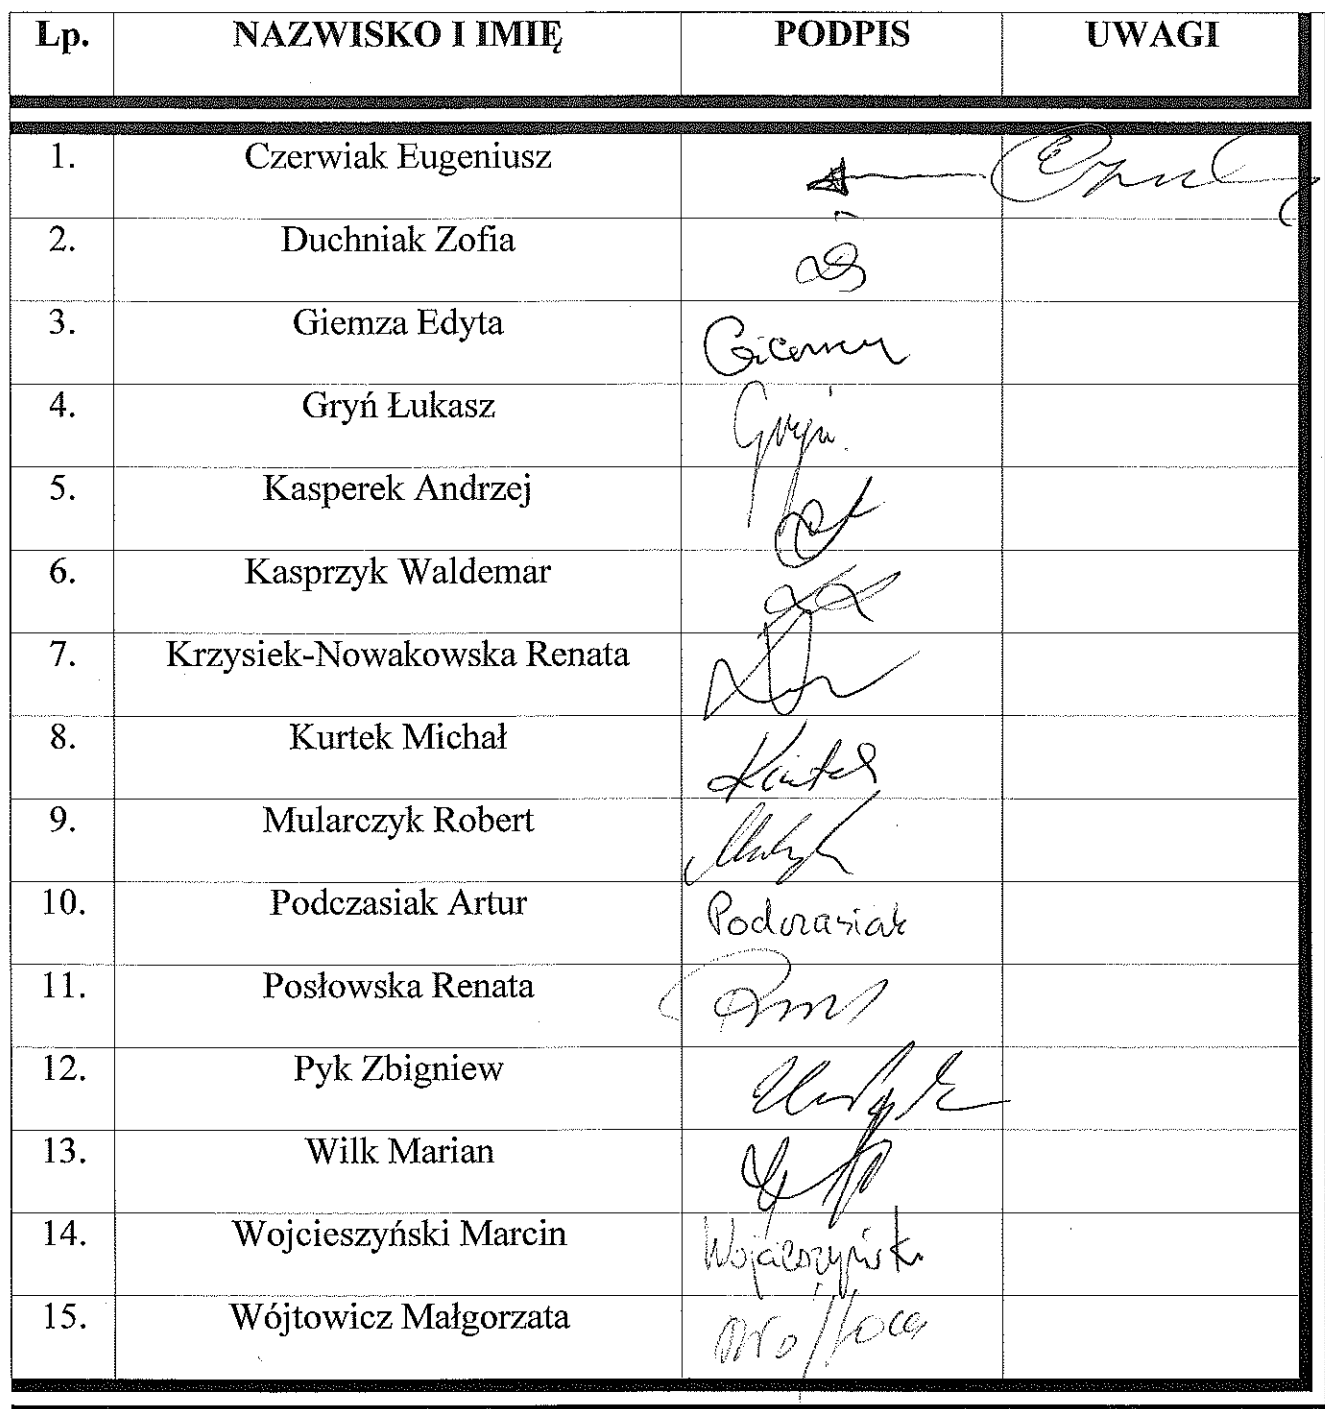 Lp. NAZWISKO I IMIĘ PODPIS UWAGI
1. Czerwiak Eugeniusz
2. Duchniak Zofia
3. Giemza Edyta
4. Gryń Łukasz Gryń
5. Kasperek Andrzej
6. Kasprzyk Waldemar
7. Krzysiek-Nowakowska Renata
8. Kurtek Michał Kurtek
9. Mularczyk Robert
10. Podczasiak Artur Podczasiak
11. Posłowska Renata
12. Pyk Zbigniew
13. Wilk Marian
14. Wojcieszyński Marcin Wojcieszyński
15. Wójtowicz Małgorzata